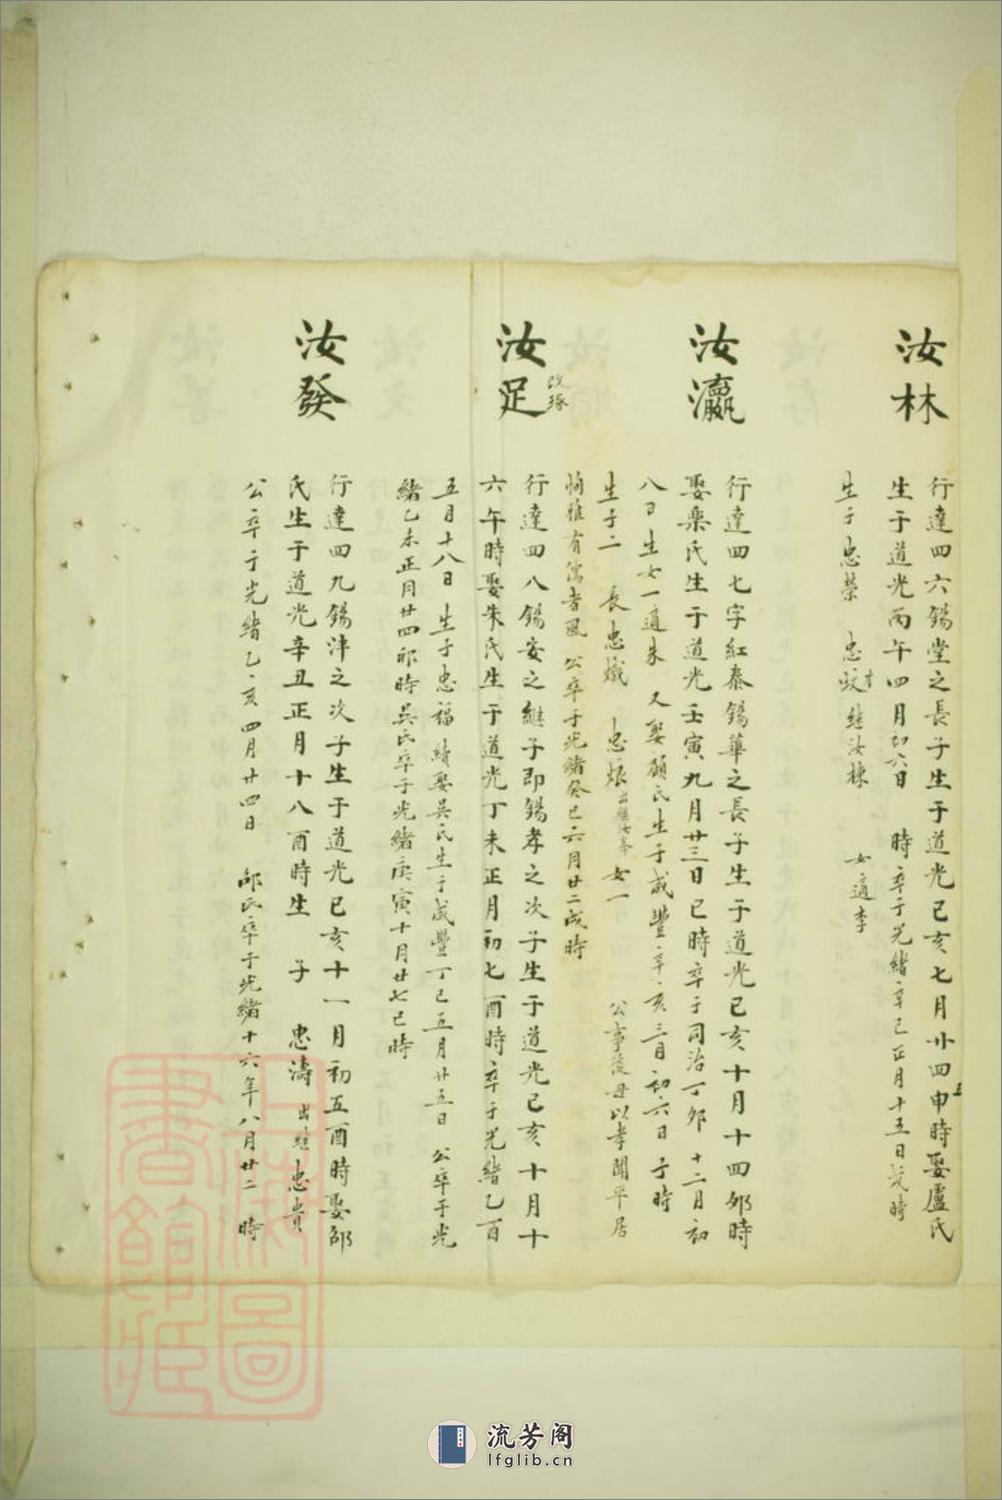 汝林
行達四六錫堂之長子生于道光己亥七月廿四申時娶盧氏
生于道光丙午四月初六日 時卒于光緒辛巳正月十五日戌時
生子忠榮 忠 继汝棟 女適李
汝瀛
行達四七字紅泰錫華之長子生于道光己亥十月十四卯時
娶樂氏生于道光壬寅九月廿三日巳時卒于同治丁卯十二月初
八日生女一適朱 又娶顧氏生于咸豐辛亥三月初六日子時
生子二 長忠熾 忠烺出繼汝 女一 公事後母以孝聞平居
恂雅有儒者風 公卒于光緒癸巳六月廿二戌時
汝足
改琢
行達四八錫安之継子即錫孝之次子生于道光己亥十月十
六午時娶朱氏生于道光丁未正月初七酉時卒于光緒乙酉
五月十八日 生子忠福 續娶吳氏生于咸豐丁巳五月廿五日 公卒于光
緒乙未正月廿四卯時吳氏卒于光緒庚寅十月廿七巳時
汝發
行達四九錫沣之次子生于道光己亥十一月初五酉時娶邵
氏生于道光辛丑正月十八酉時生 子 忠濤出継忠貴
公卒于光緒乙亥四月廿四日 邵氏卒于光緒十六年八月廿二 時
上海圖
書館藏
流芳阁
lfglib.cn